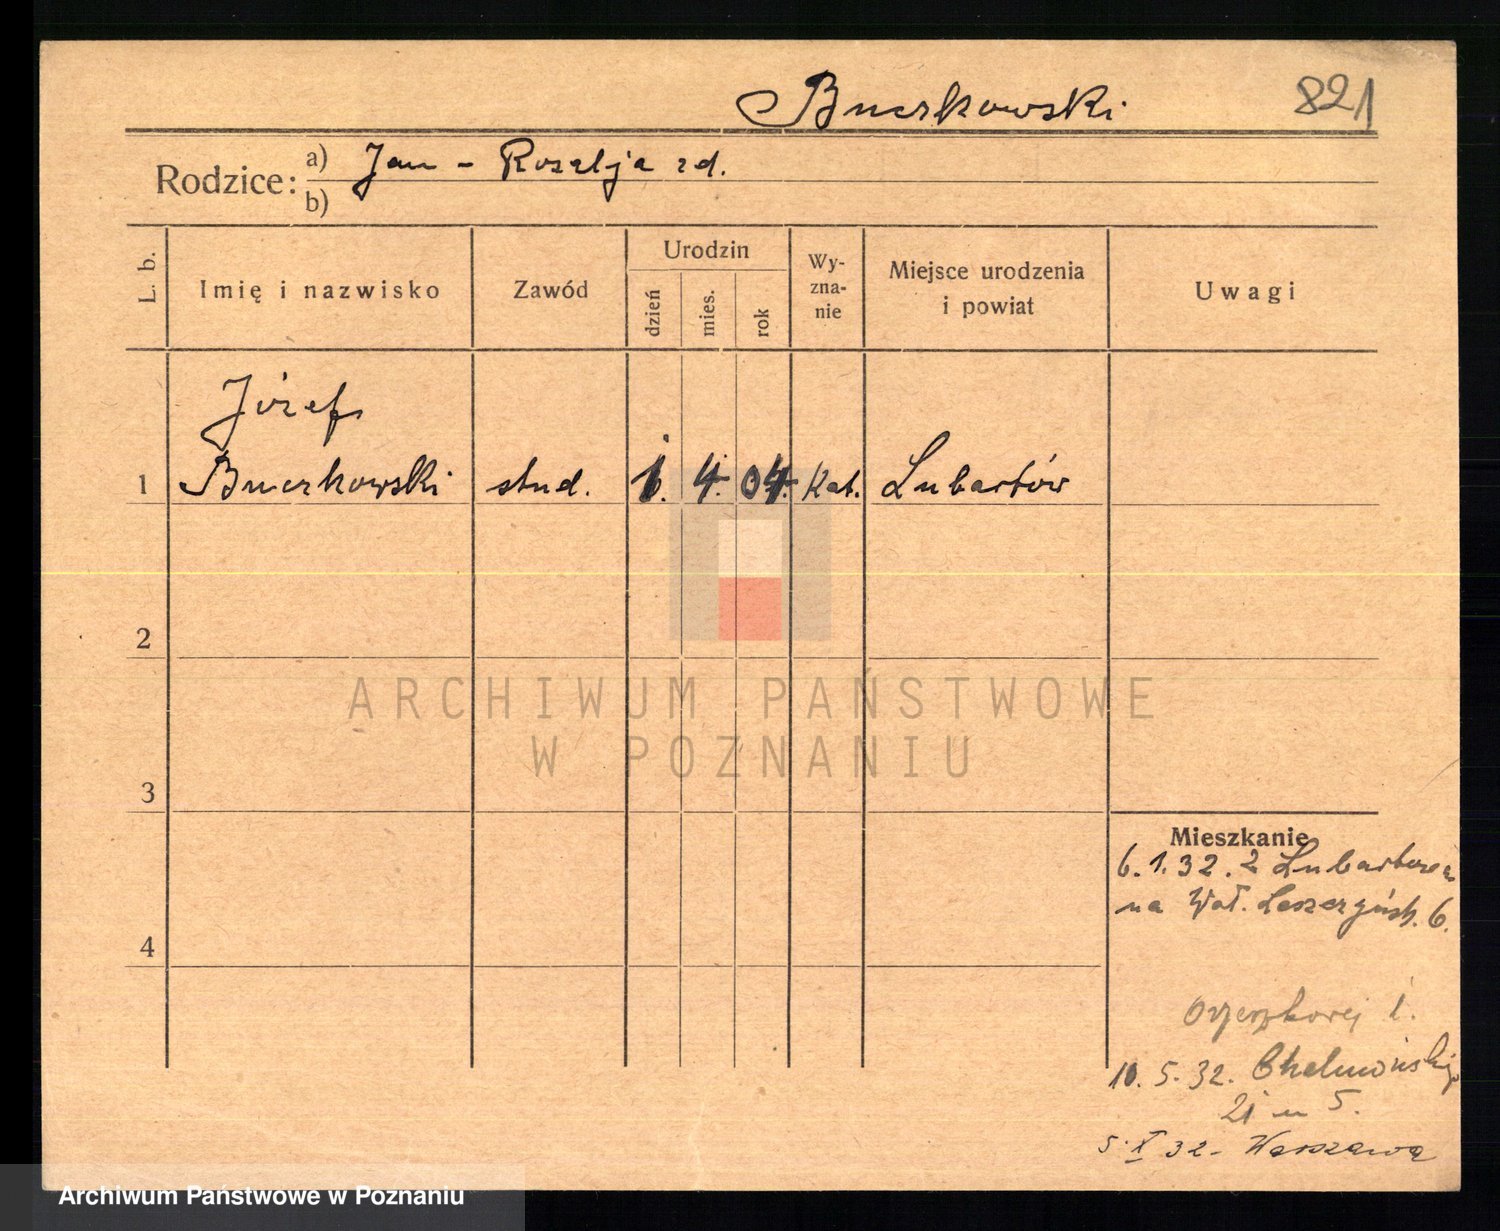 821
Rodzice: a) Jan - Rozalja zd.
b)
L. b.
Imię i nazwisko
Zawód
Urodzin
dzień
mies.
rok
Wy-
zna-
nie
Miejsce urodzenia
i powiat
Uwagi
Józef
1 stud. 1. 4. 04. Kat. Lubartów
2
3
4
ARCHIWUM PAŃSTWOWE
W POZNANIU
Mieszkanie
6.1.32. z Lubartowa
na Wał. 6.
Orzeszkowej 1.
10.5.32.
21 m 5.
5 X 32 - Warszawa
Archiwum Państwowe w Poznaniu